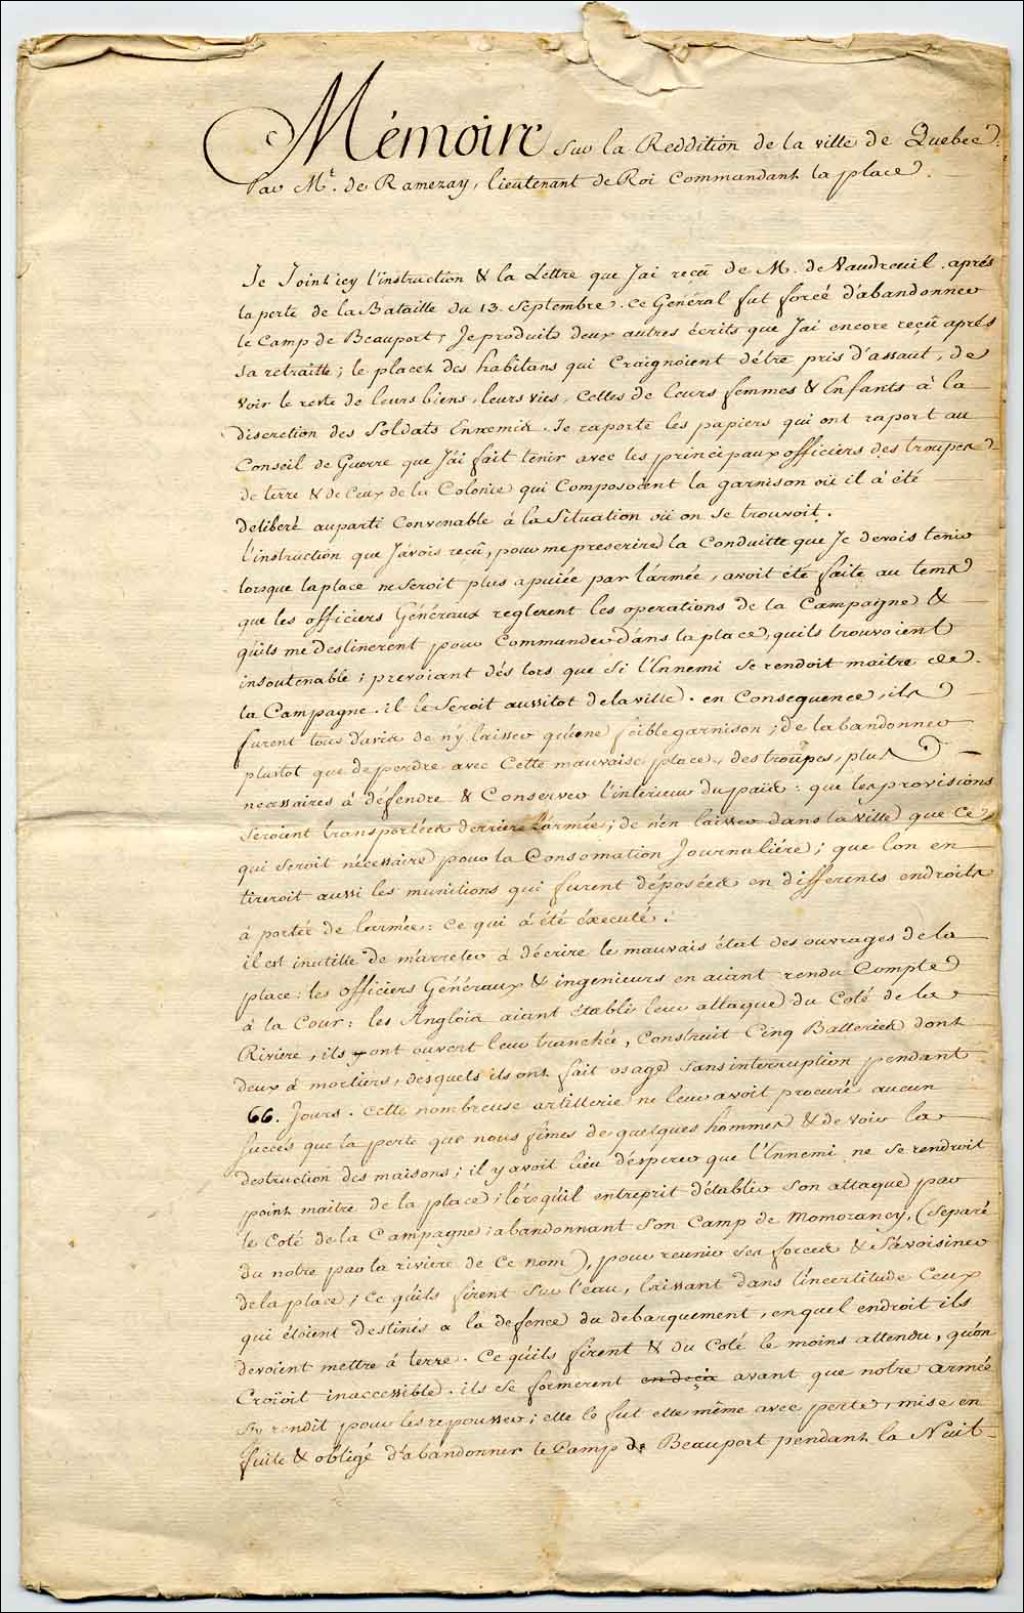 Mémoire Sur la Reddition de la ville de Quebec.
Par Mr. de Ramezay, lieutenant de Roi Commandant la place.
Je Joint icy l'instruction & la Lettre que J'ai reçû de M. de Vaudreuil, aprés
la perte de la Bataille du 13. Septembre. Ce Général fut forcé d'abandonner
le Camp de Beauport, Je produits deux autres écrits que J'ai encore reçû aprés
sa retraitte; le placet des habitans qui Craignoient d'être pris d'assaut, de
voir le reste de leurs biens, leurs vies, Celles de leurs femmes & Enfants à la
discretion des Soldats Ennemis. Je raporte les papiers qui ont raport au
Conseil de Guerre que J'ai fait tenir avec les principaux officiers des troupes
de terre & de Ceux de la Colonie qui Composoient la garnison où il à été
deliberé au parti Convenable à la Situation où on se trouvoit.
l'instruction que J'avois reçû, pour me prescrire la Conduitte que Je devois tenir
lorsque la place ne Seroit plus apuiée par l'armée, avoit été faite au tems
que les officiers Généraux reglerent les operations de la Campagne &
qu'ils me destinerent pour Commander dans la place, qu'ils trouvoient
insoutenable; prevoiant dés lors que Si l'Ennemi se rendoit maitre de
la Campagne. il le Seroit aussitot de la ville. en Consequence, ils
furent tous d'avis de n'y laisser qu'une foible garnison; de l'abandonner
plustot que de perdre avec Cette mauvaise place, des troupes, plus
necessaires à défendre & Conserver l'interieur du païs: que les provisions
Seroient transportées derriere l'armée; de n'en laisser dans la ville que Ce
qui Seroit nécessaire pour la Consomation Journaliére; que l'on en
tireroit aussi les munitions qui furent déposées en differents endroits
à portée de l'armée: Ce qui à été éxecuté.
il est inutille de m'arreter à décrire le mauvais état des ouvrages de la
place: les officiers Généraux & ingenieurs en aiant rendu Compte
à la Cour: les Anglois aiant établi leur attaque du Coté de la
Riviere, ils y ont ouvert leur tranchée, Construit Cinq Batteries dont
deux à mortiers, desquels ils ont fait usage sans interruption pendant
66. Jours. Cette nombreuse artillerie ne leur avoit procuré aucun
Succés que la perte que nous fimes de quelques hommes & de voir la
destruction des maisons; il y avoit lieu d'esperer que l'Ennemi ne se rendroit
point maitre de la place; lorsqu'il entreprit d'établir Son attaque par
le Coté de la Campagne: abandonnant Son Camp de Momorancy, (separé
du notre par la riviere de Ce nom), pour reunir ses forces & S'avoisiner
de la place; Ce qu'ils firent Sur l'eau, laissant dans l'incertitude Ceux
qui étoient destinés à la defence du debarquement, en quel endroit ils
devoient mettre à terre. Ce qu'ils firent & du Coté le moins attendu, qu'on
Croioit inaccessible. ils se formerent en deça avant que notre armée
S'y rendit pour les repousser; elle le fut elle même avec perte, mise en
fuite & obligé d'abandonner le Camp de Beauport pendant la Nuit